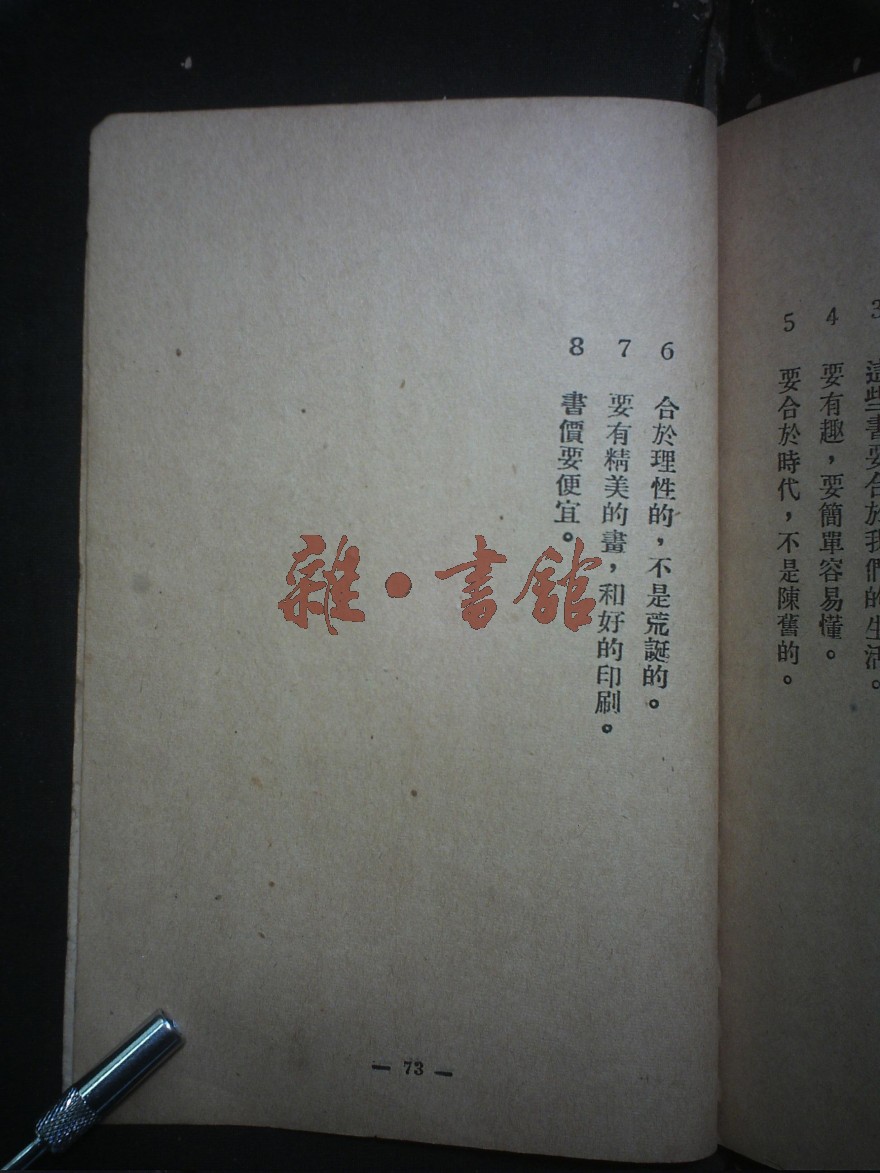 3 這些書要合於我們的生活。
4 要有趣，要簡單容易懂。
5 要合於時代，不是陳舊的。
6 合於理性的，不是荒誕的。
7 要有精美的畫，和好的印刷。
8 書價要便宜。
雜·書館
— 73 —